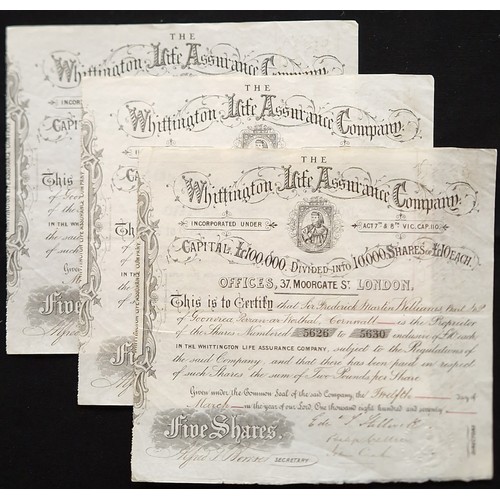 THE
Whittington Life Assurance Company.
INCORPO
CAPI
This is
of
of the S
IN THE WHITTI
of such
Given
Five
Alfred
THE
Whittington Life Assurance Company.
INCORPORATED
CAPITAL
This is
of
of the
IN THE WH
of such
Giv
Five
Alfred
THE
Whittington Life Assurance Company.
INCORPORATED UNDER ACT 7TH & 8TH VIC. CAP. 110.
CAPITAL £100,000, DIVIDED INTO 10,000 SHARES OF £10 EACH.
OFFICES, 37, MOORGATE ST. LONDON.
This is to Certify that Sir Frederick Martin Williams Bart M.P
of Goonvrea Perran-ar-Worthal, Cornwall is the Proprietor
of the Shares Numbered 5626 to 5630 inclusive of £10 each
IN THE WHITTINGTON LIFE ASSURANCE COMPANY, subject to the Regulations of
the said Company and that there has been paid in respect
of such Shares the sum of Two Pounds per Share
Given under the Common Seal of the said Company, the Twelfth day of
March in the year of our Lord, One thousand eight hundred and seventy
Five Shares.
Alfred T. Bowser SECRETARY
WHITTINGTON LIFE ASSURANCE COMPANY